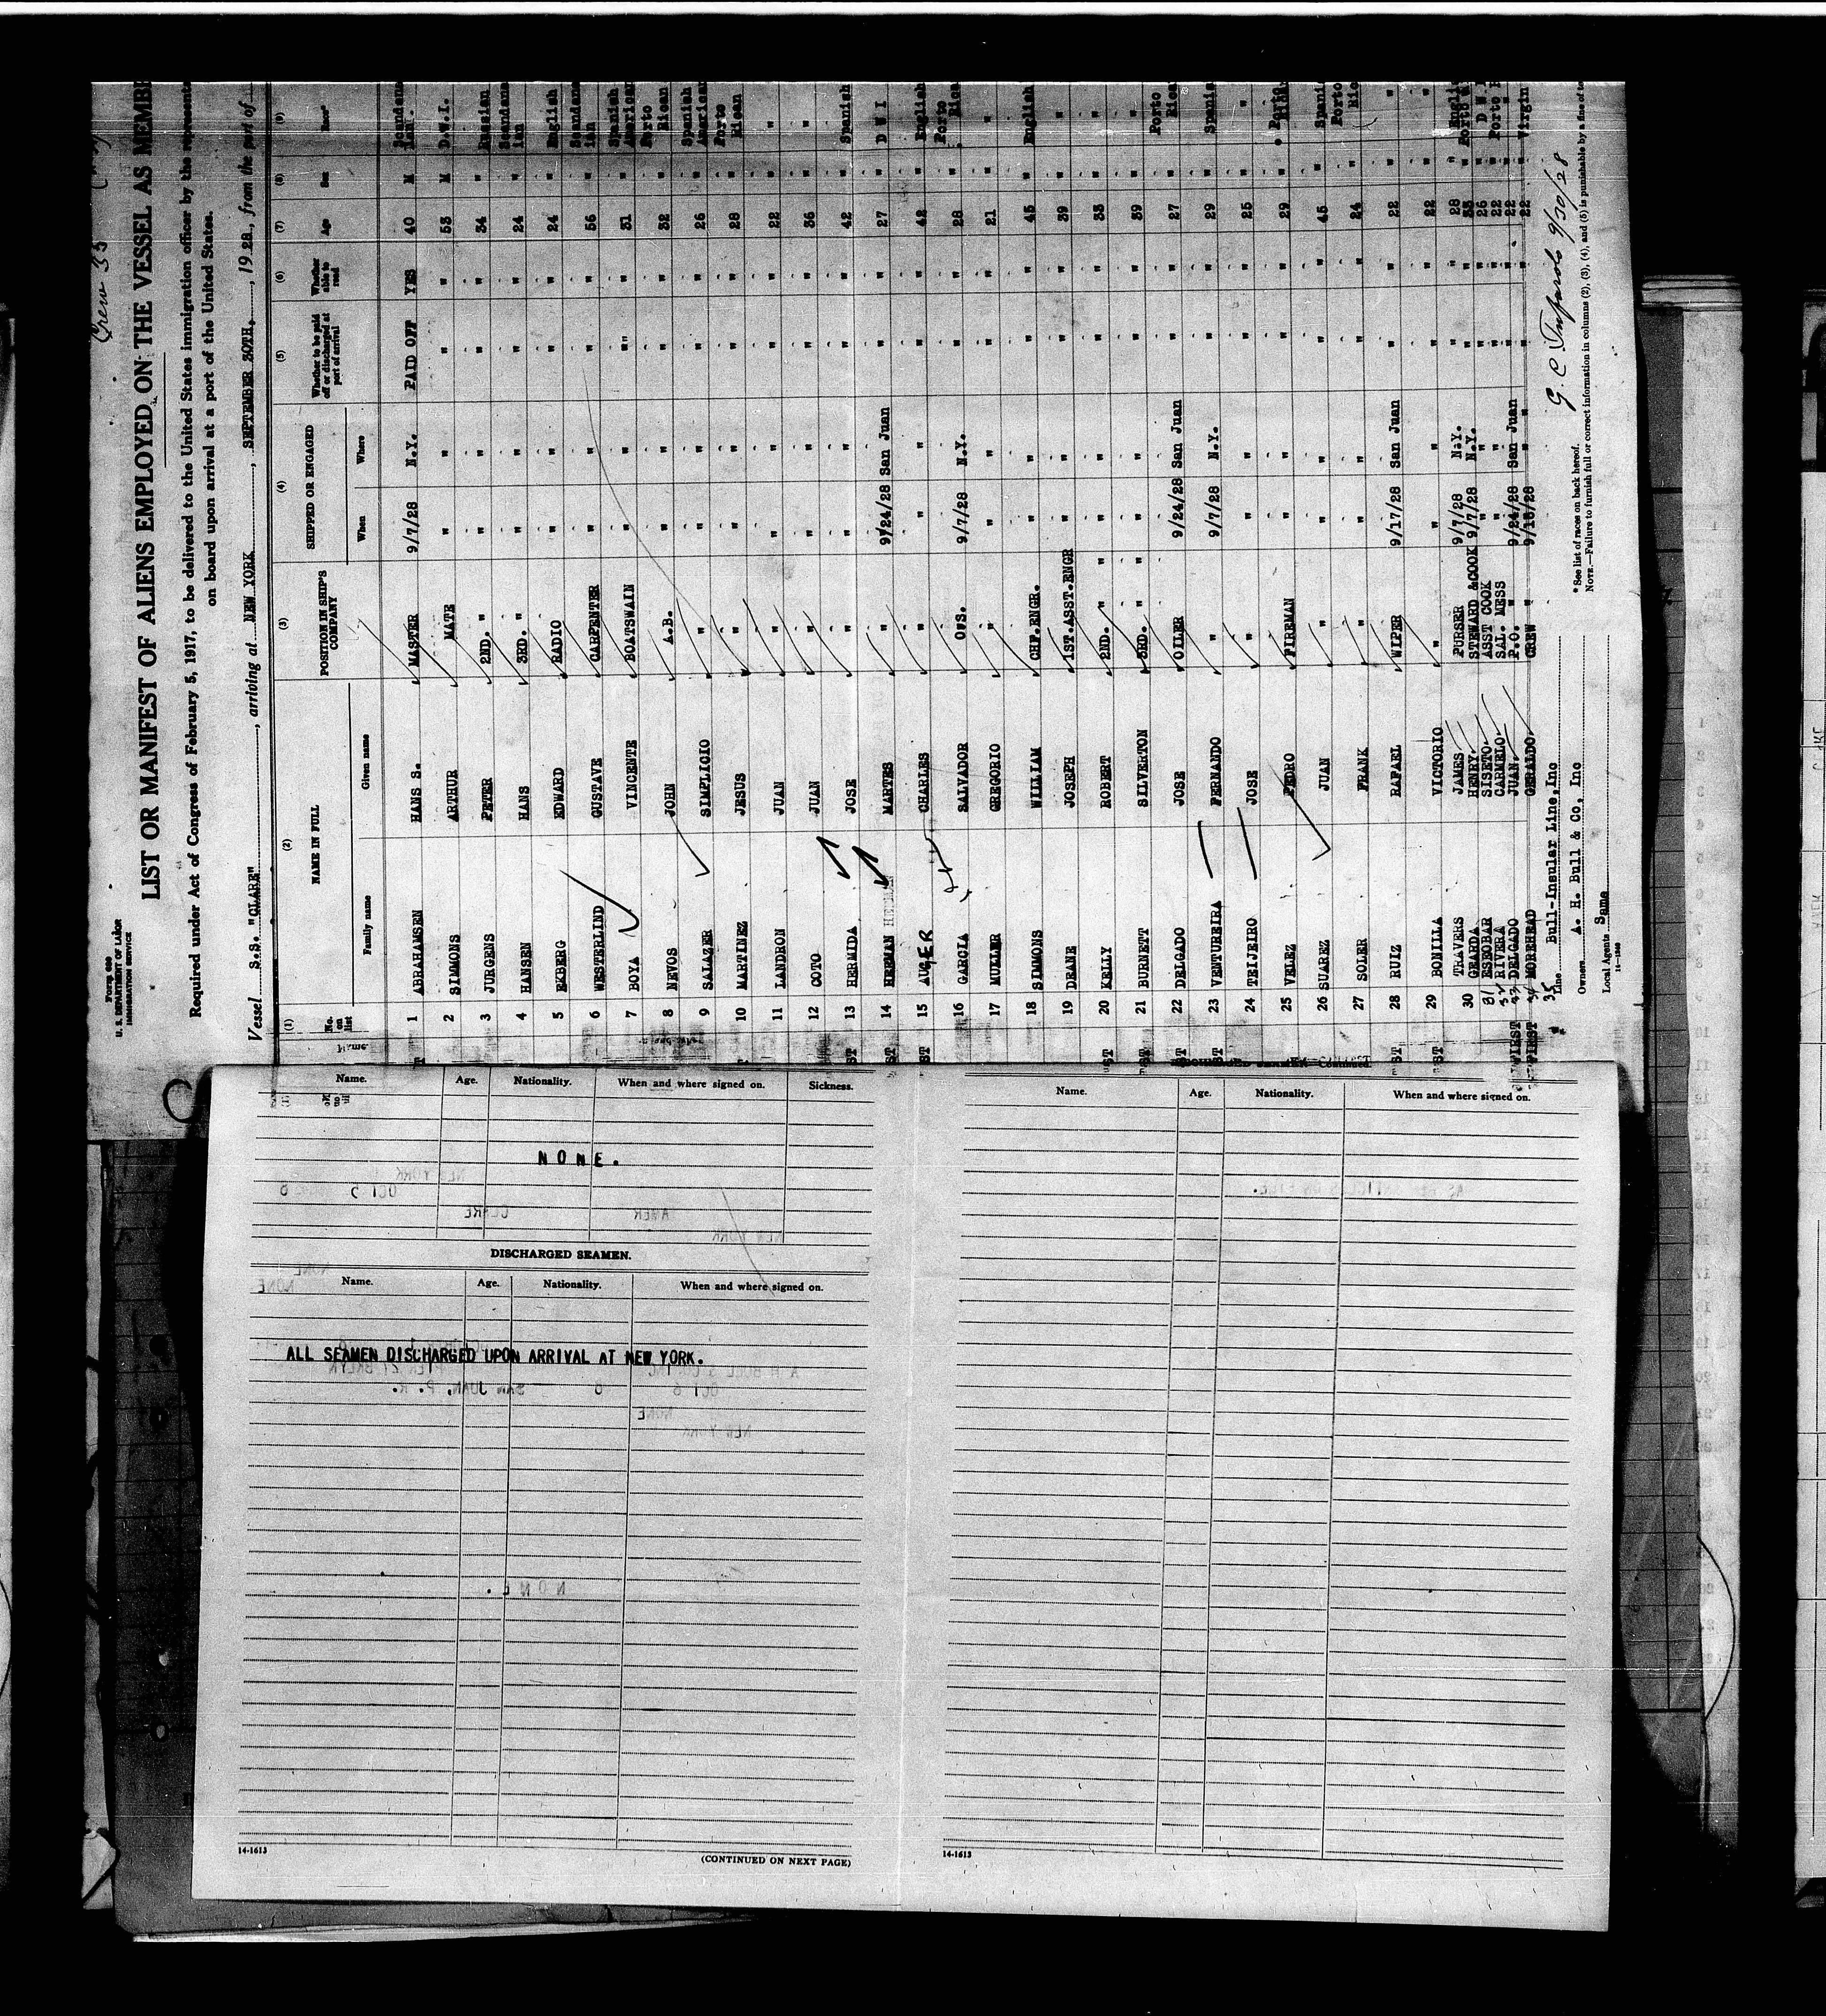 Crew 35
Form 680
U. S. DEPARTMENT OF LABOR
IMMIGRATION SERVICE
LIST OR MANIFEST OF ALIENS EMPLOYED ON THE VESSEL AS MEMBE
Required under Act of Congress of February 5, 1917, to be delivered to the United States immigration officer by the represents
on board upon arrival at a port of the United States.
Vessel S.S. "CLARE", arriving at NEW YORK, SEPTEMBER 30TH., 1928, from the port of
(1) (2) (3) (4) (5) (6) (7) (8) (9)
No. on list NAME IN FULL POSITION IN SHIP'S COMPANY SHIPPED OR ENGAGED Whether to be paid off or discharged at port of arrival Whether able to read Age Sex Race*
Family name Given name When Where
1 ABRAHAMSEN HANS S. MASTER 9/7/28 N.Y. PAID OFF YES 40 M Scandina
2 SIMMONS ARTHUR MATE " " " " 53 M D.W.I.
3 JURGENS PETER 2ND. " " " " " 34 " Russian
4 HANSEN HANS 3RD. " " " " " 24 " Scandina ian
5 EKBERG EDWARD RADIO " " " " 24 " English
6 WESTERLIND GUSTAVE CARPENTER " " " " 56 " Scandina ian
7 BOYA VINCENTE BOATSWAIN " " " " 31 " Spanish American
8 NEVOS JOHN A.B. " " " " 32 " Porto Rican
9 SALAZER SIMPLICIO " " " " " 26 " Spanish American
10 MARTINEZ JESUS " " " " " 28 " Porto Rican
11 LANDRON JUAN " " " " " 22 " "
12 COTO JUAN " " " " " 36 " "
13 HERMIDA JOSE " " " " " 42 " Spanish
14 HERMAN MARTES " 9/24/28 San Juan " " 27 " D W I
15 AUGER CHARLES " " " " " 42 " English
16 GARCIA SALVADOR O.S. 9/7/28 N.Y. " " 28 " Porto Rica
17 MUELLER GREGORIO " " " " " 21 " "
18 SIMMONS WILLIAM CHF.ENGR. " " " " 45 " English
19 DEANE JOSEPH 1ST.ASST.ENGR " " " " 39 " "
20 KELLY ROBERT 2ND. " " " " " " 33 " "
21 BURNETT SILVERTON 3RD. " " " " " " 39 " "
22 DELGADO JOSE OILER 9/24/28 San Juan " " 27 " Porto Rica
23 VENTUREIRA FERNANDO " 9/7/28 N.Y. " " 29 " Spanis
24 TEIJEIRO JOSE " " " " " 25 " "
25 VELEZ PEDRO FIREMAN " " " " 29 " Porto
26 SUAREZ JUAN " " " " " 45 " Spani
27 SOLER FRANK " " " " " 24 " Porto Ric
28 RUIZ RAFAEL WIPER 9/17/28 San Juan " " 22 " "
29 BONILLA VICTORIO " " " " " 22 " "
30 TRAVERS JAMES PURSER 9/7/28 N.Y. " " 28 " Engli
GEARDA HENRY STEWARD &COOK 9/7/28 N.Y. " " 33 " Porto
31 ESEOBAR SISETO ASST COOK " " " " 26 " D W
32 RIVERA CARMELO SAL. MESS " " " " 22 " Porto R
33 DELGADO JUAN P.O. " 9/24/28 San Juan " " 22 " "
34 MOREHEAD GERALDO CREW " 9/18/28 " " " 22 " Virgin
35
Line Bull-Insular Line,Inc
Owners A. H. Bull & Co, Inc
Local Agents Same
* See list of races on back hereof.
NOTE.—Failure to furnish full or correct information in columns (2), (3), (4), and (5) is punishable by a fine of te
9/30/28
Name. Age. Nationality. When and where signed on. Sickness.
NONE.
DISCHARGED SEAMEN.
Name. Age. Nationality. When and where signed on.
ALL SEAMEN DISCHARGED UPON ARRIVAL AT NEW YORK.
14-1613
(CONTINUED ON NEXT PAGE)
Name. Age. Nationality. When and where signed on.
14-1613